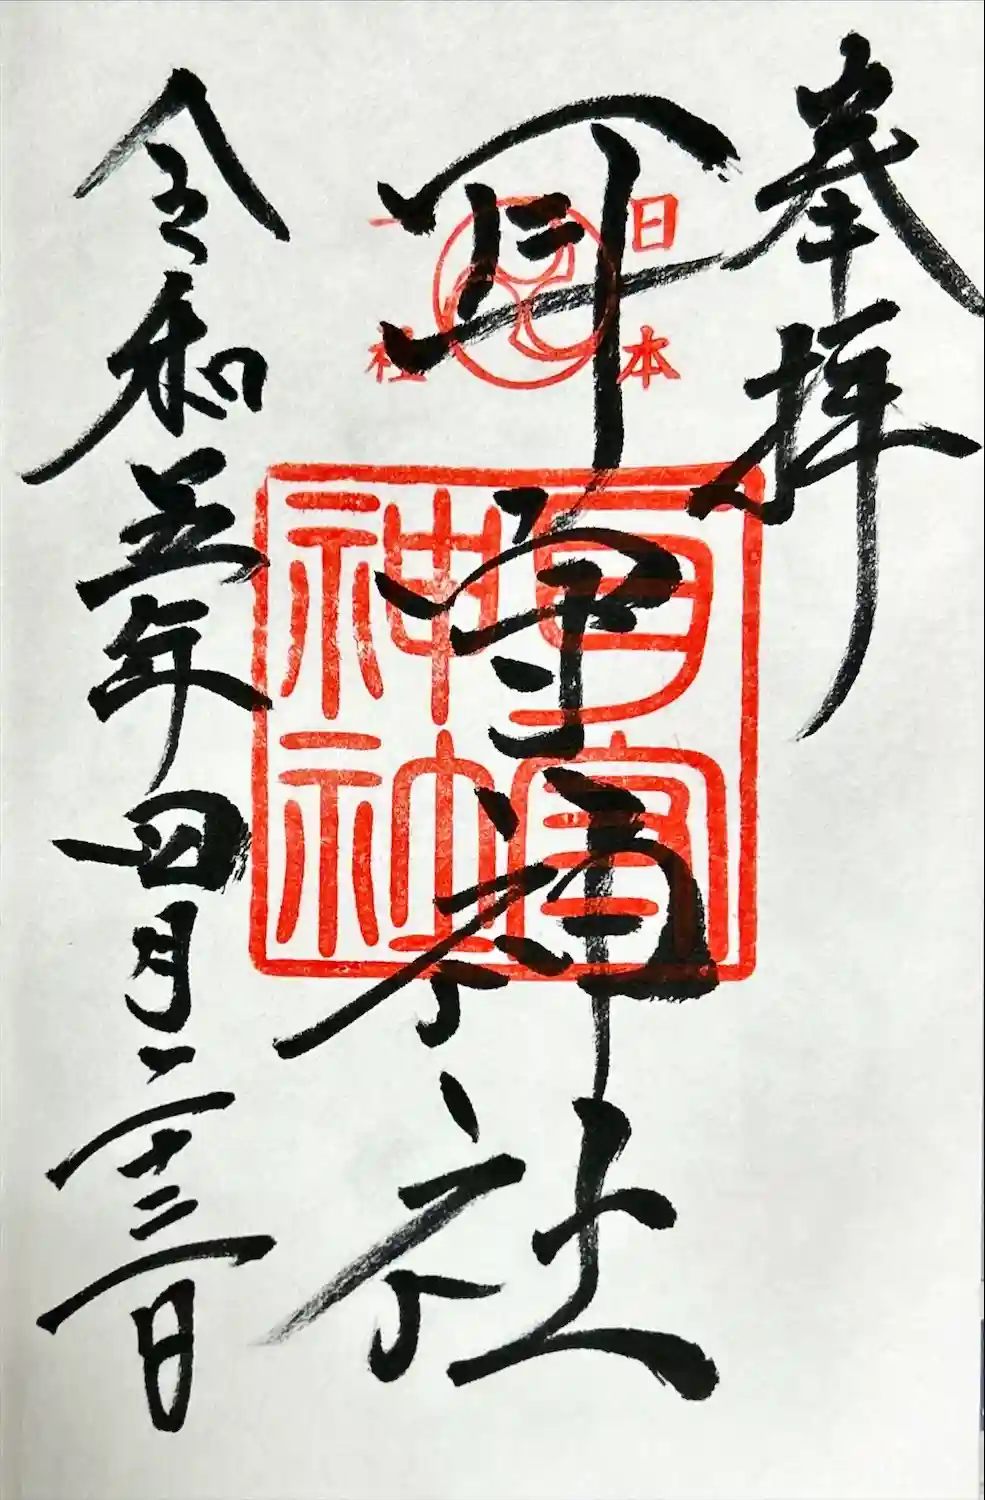 奉拝
日本一社
耳守神社
耳守神社
令和五年四月二十三日